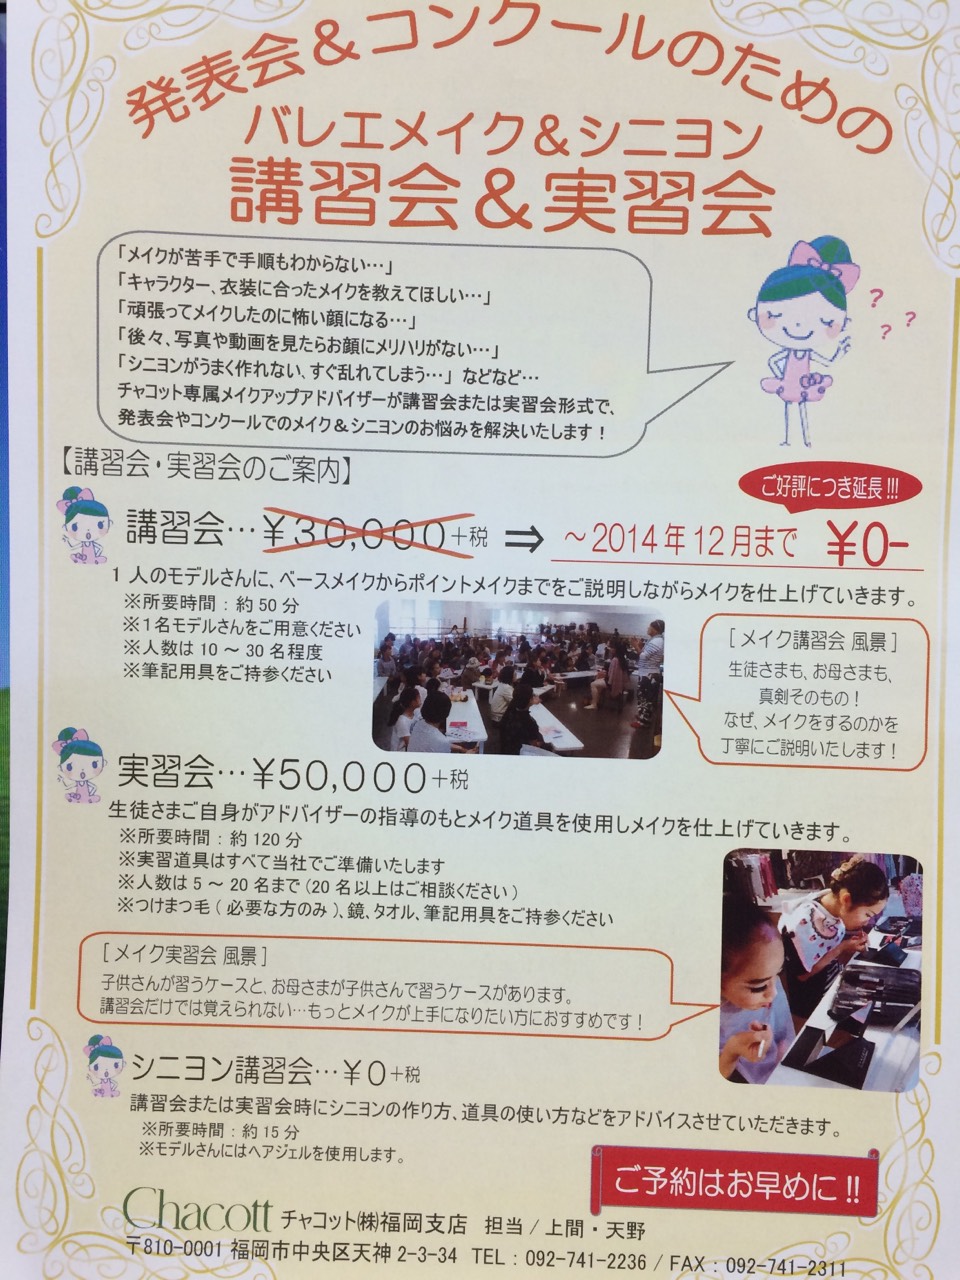 発表会＆コンクールのための
バレエメイク＆シニヨン
講習会＆実習会
「メイクが苦手で手順もわからない…」
「キャラクター、衣装に合ったメイクを教えてほしい…」
「頑張ってメイクしたのに怖い顔になる…」
「後々、写真や動画を見たらお顔にメリハリがない…」
「シニヨンがうまく作れない、すぐ乱れてしまう…」などなど…
チャコット専属メイクアップアドバイザーが講習会または実習会形式で、
発表会やコンクールでのメイク＆シニヨンのお悩みを解決いたします！
？
？
？
【講習会・実習会のご案内】
ご好評につき延長!!!
講習会…￥30,000＋税 ⇒ ～2014年12月まで ￥0-
1 人のモデルさんに、ベースメイクからポイントメイクまでをご説明しながらメイクを仕上げていきます。
※所要時間：約50分
※1名モデルさんをご用意ください
※人数は 10 ～ 30 名程度
※筆記用具をご持参ください
[ メイク講習会 風景 ]
生徒さまも、お母さまも、
真剣そのもの！
なぜ、メイクをするのかを
丁寧にご説明いたします！
実習会…￥50,000＋税
生徒さまご自身がアドバイザーの指導のもとメイク道具を使用しメイクを仕上げていきます。
※所要時間：約120分
※実習道具はすべて当社でご準備いたします
※人数は 5 ～ 20 名まで（20 名以上はご相談ください）
※つけまつ毛 ( 必要な方のみ )、鏡、タオル、筆記用具をご持参ください
[ メイク実習会 風景 ]
子供さんが習うケースと、お母さまが子供さんで習うケースがあります。
講習会だけでは覚えられない…もっとメイクが上手になりたい方におすすめです！
シニヨン講習会…￥0＋税
講習会または実習会時にシニヨンの作り方、道具の使い方などをアドバイスさせていただきます。
※所要時間：約15分
※モデルさんにはヘアジェルを使用します。
ご予約はお早めに!!
Chacott チャコット㈱福岡支店 担当 / 上間・天野
〒810-0001 福岡市中央区天神 2-3-34 TEL：092-741-2236 / FAX：092-741-2311